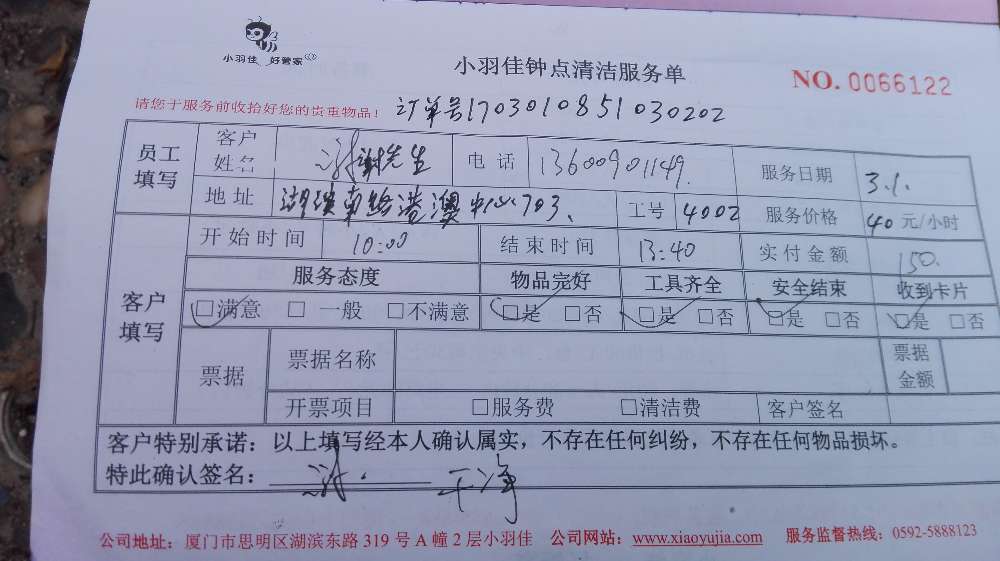 小羽佳 好管家
小羽佳钟点清洁服务单
NO. 0066122
请您于服务前收拾好您的贵重物品！
订单号1703010851030202
员工填写 客户姓名 谢先生 电话 13600901149. 服务日期 3.1.
地址 湖滨南路港澳中心703. 工号 4002 服务价格 40 元/小时
客户填写 开始时间 10:00 结束时间 13:40 实付金额 150.
服务态度 物品完好 工具齐全 安全结束 收到卡片
□满意 □一般 □不满意 □是 □否 □是 □否 □是 □否 □是 □否
票据 票据名称 票据金额
开票项目 □服务费 □清洁费 客户签名
客户特别承诺：以上填写经本人确认属实，不存在任何纠纷，不存在任何物品损坏。
特此确认签名： 干净
公司地址：厦门市思明区湖滨东路 319 号 A 幢 2 层小羽佳 公司网站：www.xiaoyujia.com 服务监督热线：0592-5888123